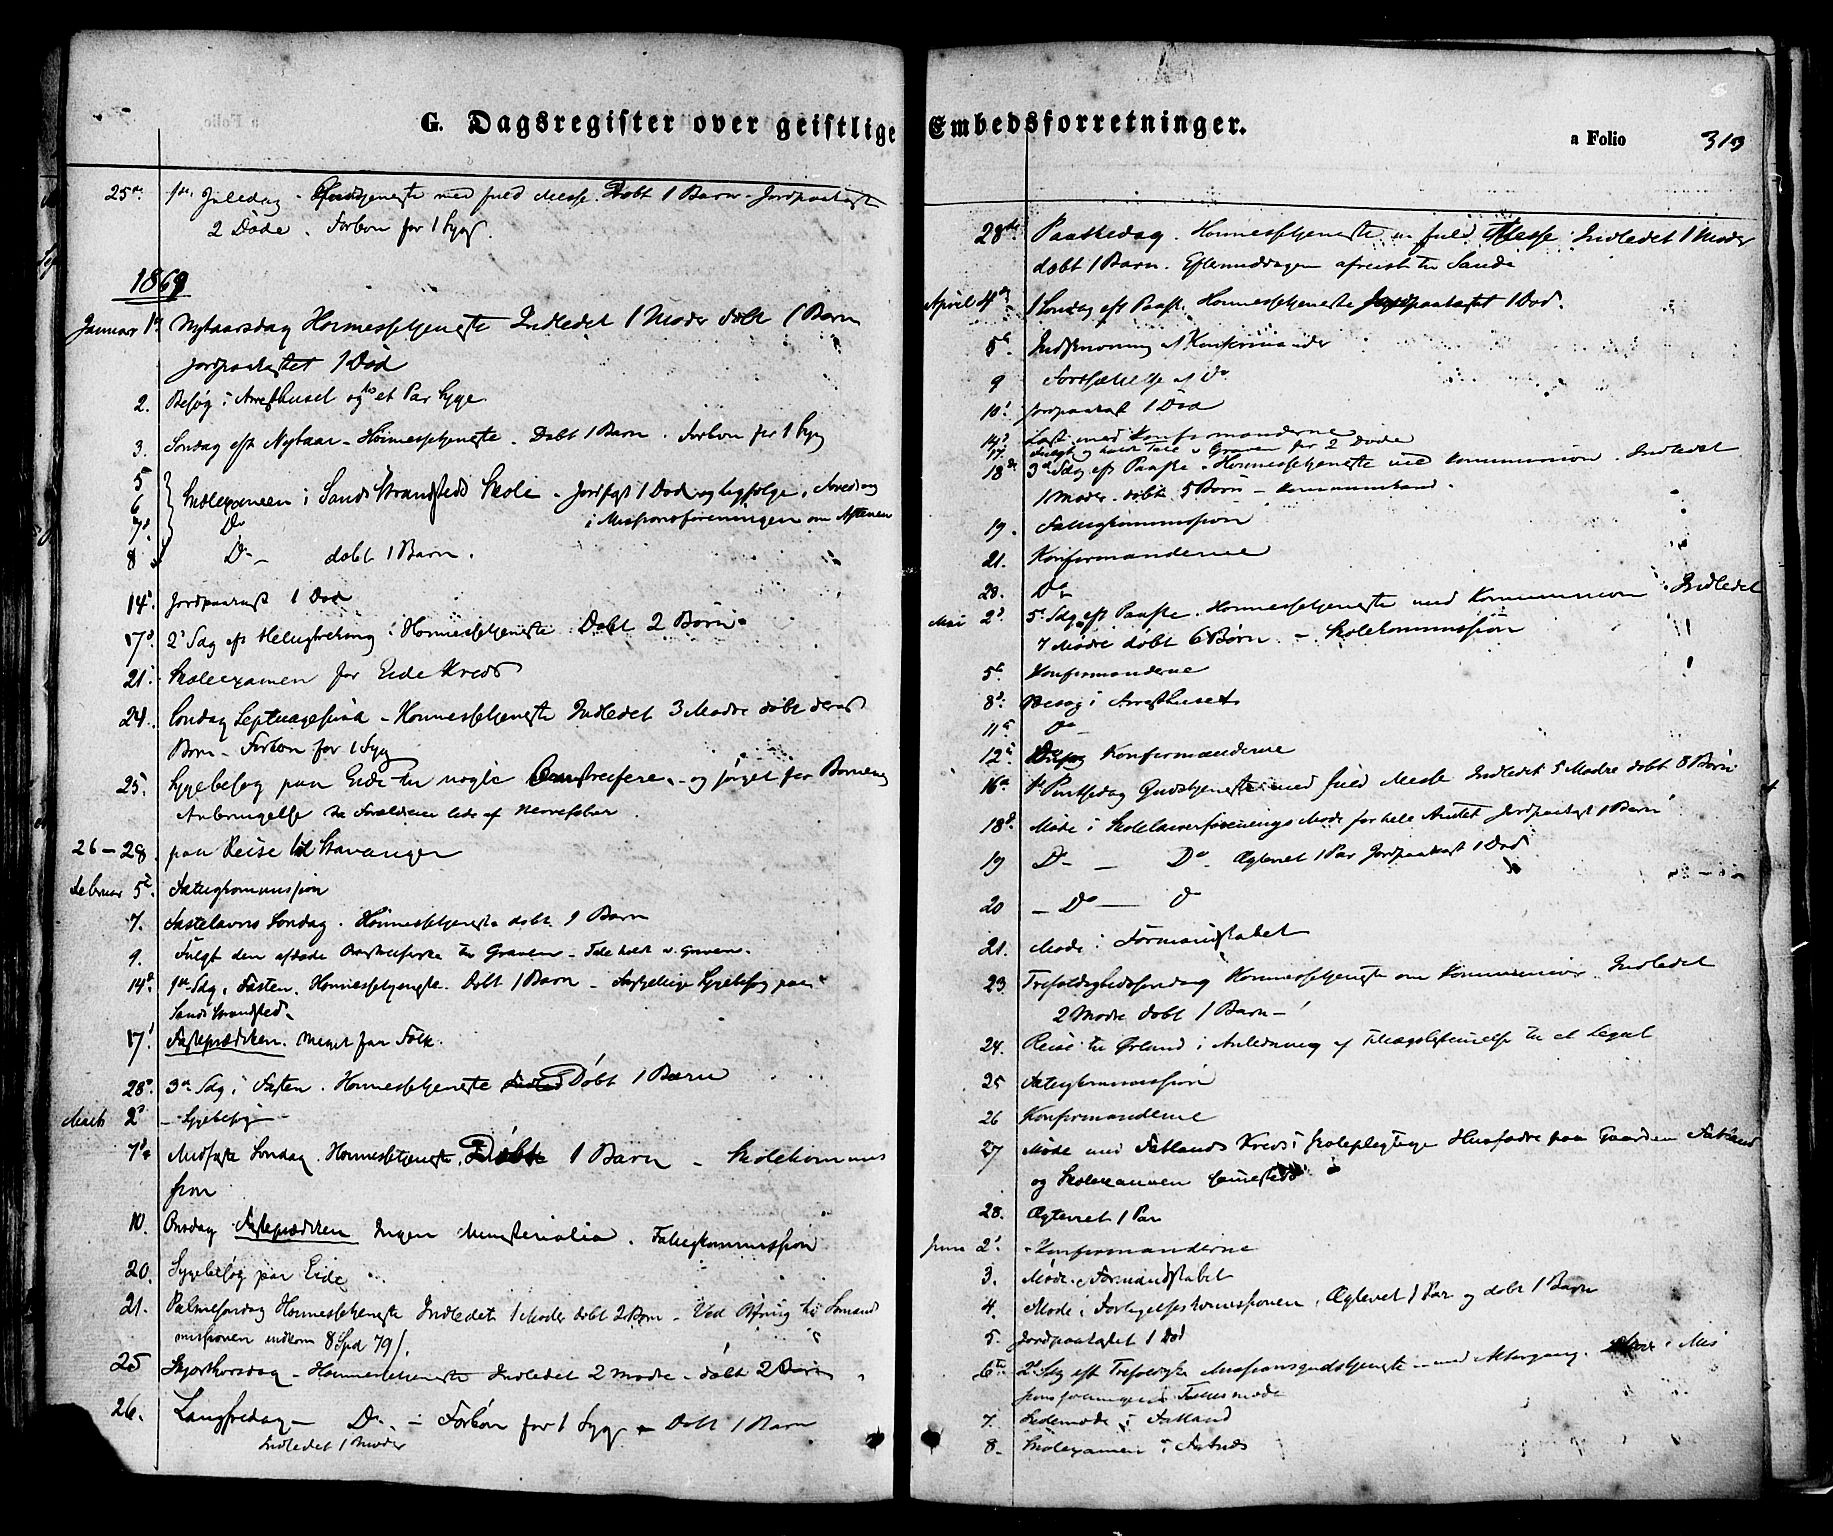 G. Dagsregister over geistlige Embedsforretninger.
a Folio 313
25de 1ste Juledag - Gudstjeneste med fuld Messe. Døbt 1 Barn - Jordpaakast
2 Døde. Forbøn for 1 Syg.
1869
Januar 1st Nytaarsdag Høimessetjeneste Indledet 1 Moder døbt 1 Barn
jordpaakastet 1 Død
2. Besøg i Arresthuset og et Par Syge.
3. Søndag eft Nytaar - Høimessetjeneste. Døbt 1 Barn. Forbøn for 1 Syg
5
6 Skoleexamen i Sands Strandsteds Skole - Jordfæst 1 Død og ligfølge. Foredrag
7. Do i Missionsforeningen om Aftenen
8 Do - døbt 1 Barn.
14. Jordpaakast 1 Død
17. 2d Sdg eft Helligtrekong i Høimessetjeneste Døbt 2 Børn.
21. Skoleexamen for Eide Kreds
24. Søndag Septuagesima - Høimessetjeneste Indledet 3 Mødre døbt deres
Børn - Forbøn for 1 Syg
25. Sygebesøg paa Eide til nogle og sørget for Børnenes
Anbringelse da Forældrene lide af Nervefeber.
26 - 28. paa Reise til Stavanger
Februar 5. Fattigkommission
7. Fastelavns Søndag. Høimessetjeneste døbt 1 Barn
9. Fulgt den afdøde til Graven - Tale holdt v. Graven.
14. 1ste Sdg. i Fasten. Høimessetjeneste. Døbt 1 Barn - Forskjellige Sygebesøg paa
Sands Strandsted.
17. Fasteprædiken. Meget faa Folk.
28. 3de Sdg i Fasten. Høimessetjeneste Døbt 1 Barn
Marts 2d - Sygebesøg -
7d Midfaste Søndag. Høimessetjeneste. Døbt 1 Barn - Skolekommis
sion
10. Onsdag Fasteprædiken Ingen Ministerialia. Fattigkommission
20. Sygebesøg paa Eide
21. Palmesøndag Høimessetjeneste Indledet 1 Moder døbt 2 Børn - Ved Ofring til Sømand
missionen indkom 8 Spd 79 s.
25 Skjærthorsdag - Høimessetjeneste Indledet 2 Mødre - døbt 2 Børn
26. Langfredag - Do - Forbøn for 1 Syg - Døbt 1 Barn
Indledet 1 Moder
28de Paaskedag. Høimessetjeneste m fuld Messe. Indledet 1 Moder
døbt 1 Barn. Eftermiddagen afreist til Sande
April 4de 1 Søndag eft Paaske. Høimessetjeneste Jordpaakastet 1 Død.
5t. Indskrivning af Konfirmander
9 Fortsættelse af Do
10. Jordpaakast 1 Død
14. Læst med Konfirmanderne
17. Fulgt og holdt Tale v Graven for 2 Døde
18de 3d Sdg eft Paaske - Høimessetjeneste med Kommunion. Indledet
1 Moder. døbt 5 Børn -
19. Fattigkommission
21. Konfirmanderne
23. Do
Mai 2d 5. Sdg eft Paaske. Høimessetjeneste med Kommunion Indledet
7 Mødre døbt 6 Børn. - Skolekommission
5t Konfirmanderne
8d. Besøg i Arresthuset
11t Do -
12t Konfirmanderne
16de 1st Pintsedag Gudstjeneste med fuld Messe Indledet 5 Mødre døbt 8 Børn
18d. Møde i Skolelærerforenings Møde for hele Amtet Jordpaakast 1 Barn
19 Do - Do. Ægteviet 1 Par Jordpaakast 1 Død
20 - Do - Do
21. Møde i Formandskabet
23 Trefoldighedssøndag Høimessetjeneste om Kommunion. Indledet
2 Mødre døbt 1 Barn -
24. Reise til Ørland i Anledning af til et Legat
25 Fattigkommission
26 Konfirmanderne
27 Møde med Fatlands Kreds skolepligtige Husfædre paa Gaarden Fatland
og Skoleexamen
28. Ægteviet 1 Par
Juni 2d - Konfirmanderne
3. Møde i Formandskabet
4. Møde i Forligelseskommissionen, Ægteviet 1 Par og døbt 1 Barn
5. Jordpaakastet 1 Død
6te 2d Sdg eft Trefoldigh. Missionsgudstjeneste - med Altergang. Møde i Mis
sionsforeningens Fællesmøde
7. i Fatland
8. Skoleexamen i